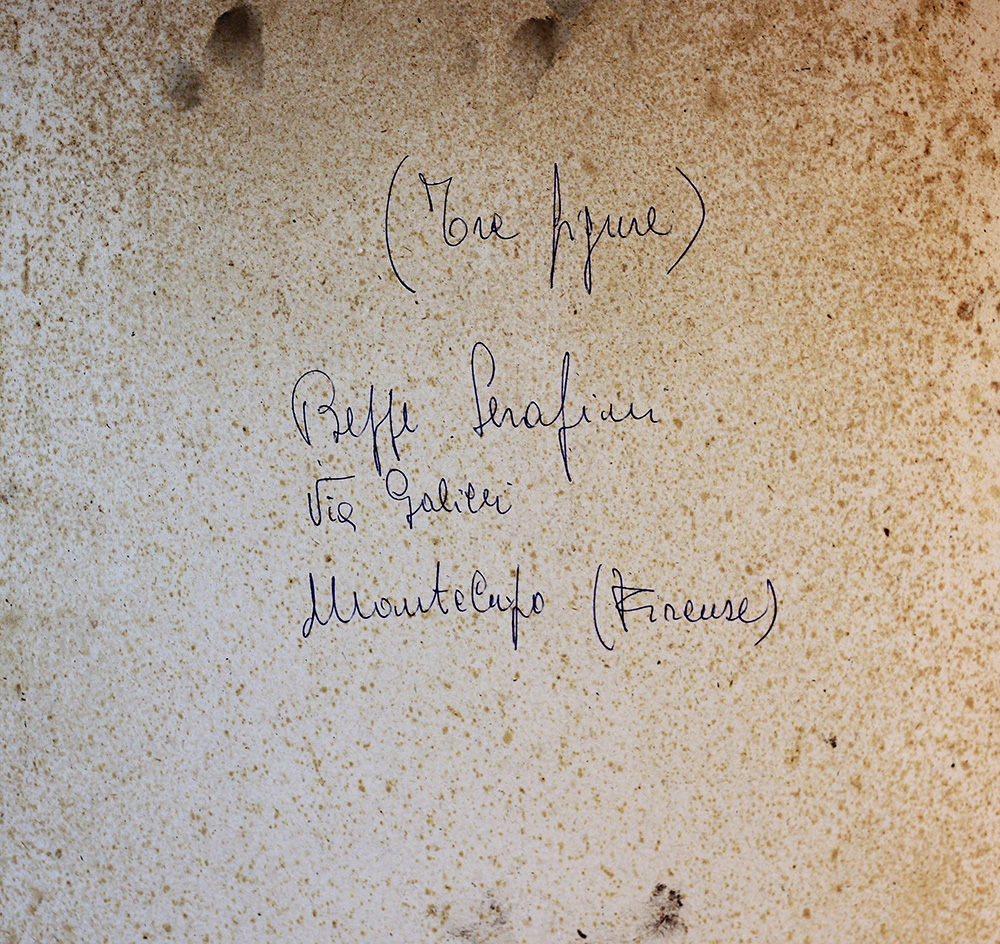 (Tre figure)
Beppe Serafini
Via Galilei
Montelupo (Firenze)